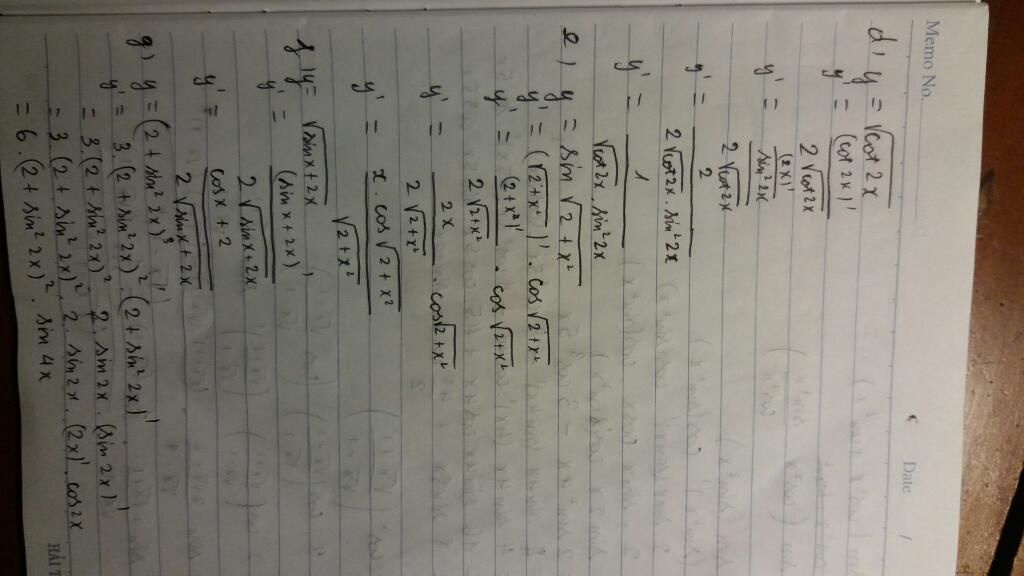 Memo No. Date /
d) y = √(cot 2x)
y' = (cot 2x)' / 2√(cot 2x)
y' = ((2x)' / sin² 2x) / 2√(cot 2x)
y' = 2 / (2√(cot 2x) . sin² 2x)
y' = 1 / (√(cot 2x) . sin² 2x)
e) y = sin √(2 + x²)
y' = (√(2 + x²))' . cos √(2 + x²)
y' = (2 + x²)' / 2√(2 + x²) . cos √(2 + x²)
y' = 2x / 2√(2 + x²) . cos √(2 + x²)
y' = x . cos √(2 + x²) / √(2 + x²)
f) y = √(sin x + 2x)
y' = (sin x + 2x)' / 2√(sin x + 2x)
y' = cos x + 2 / 2√(sin x + 2x)
g) y = (2 + sin² 2x)³
y' = 3 (2 + sin² 2x)² (2 + sin² 2x)'
= 3. (2 + sin² 2x)² 2 . sin 2x . (sin 2x)'
= 3. (2 + sin² 2x)² . 2 . sin 2x . (2x)' . cos 2x
= 6 . (2 + sin² 2x)² . sin 4x